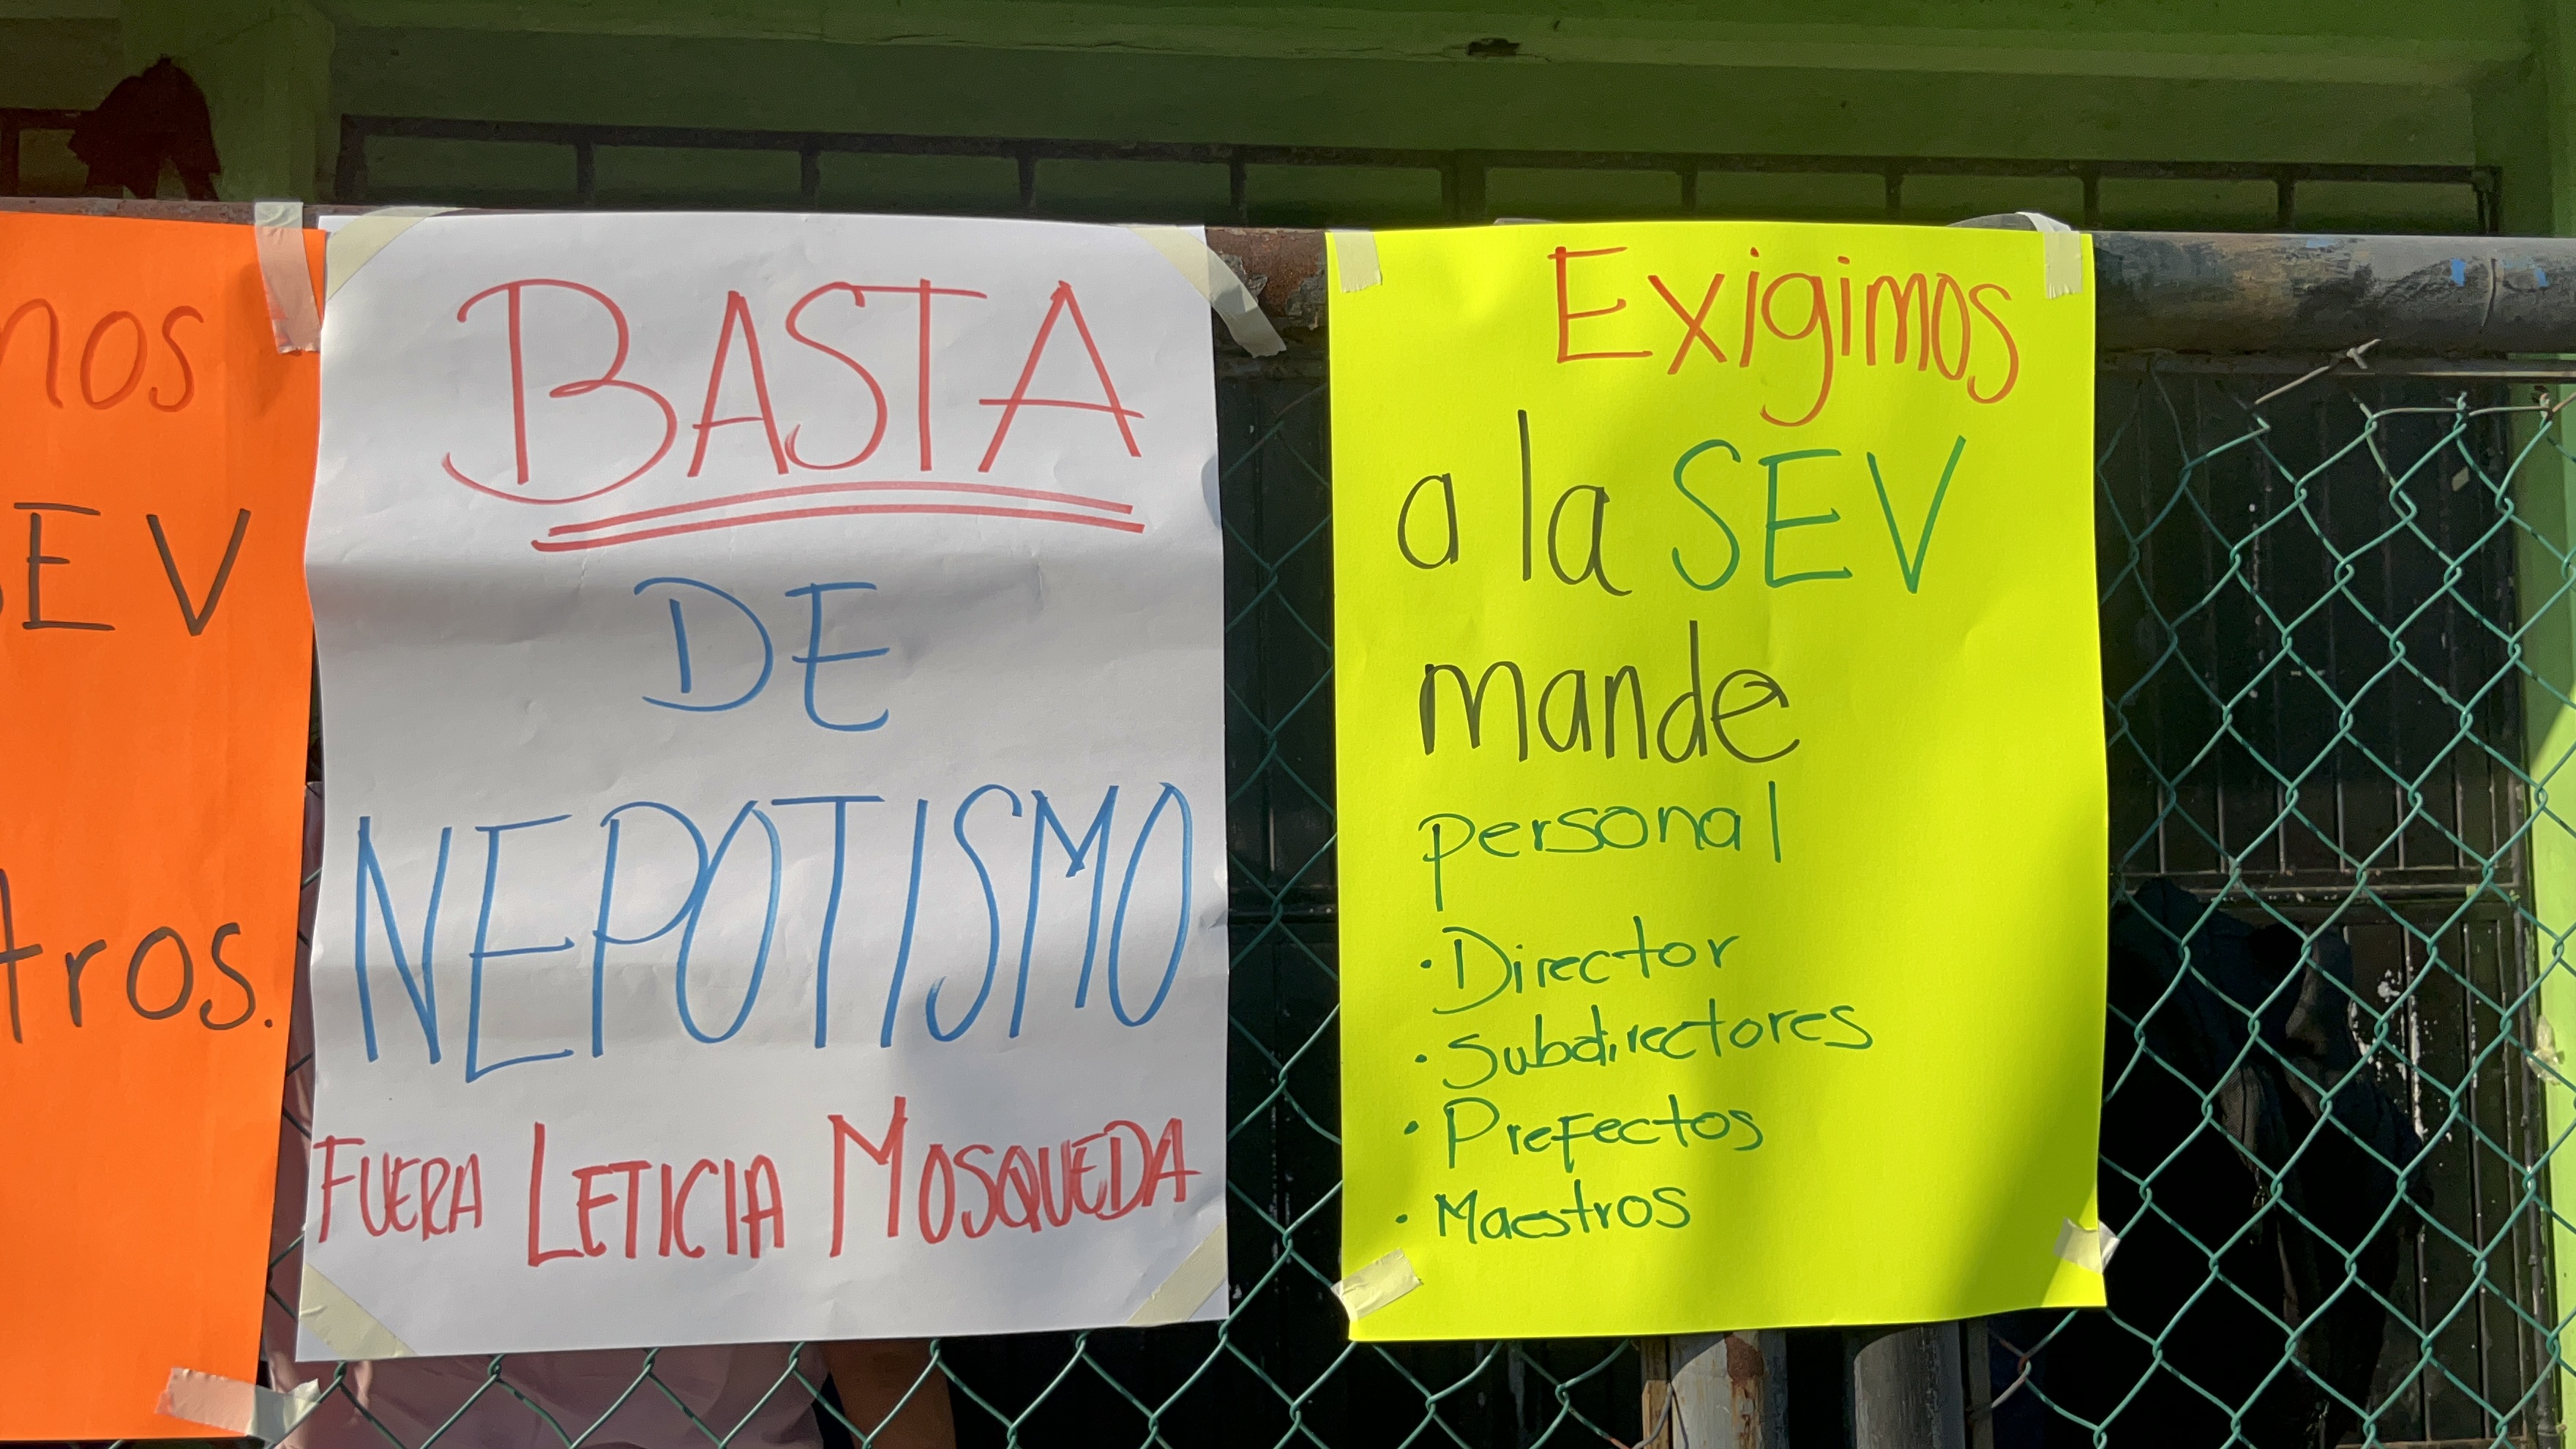 nos
EV
tros.
BASTA
DE
NEPOTISMO
FUERA LETICIA MOSQUEDA
Exigimos
a la SEV
mande
personal
· Director
· Subdirectores
· Prefectos
· Maestros